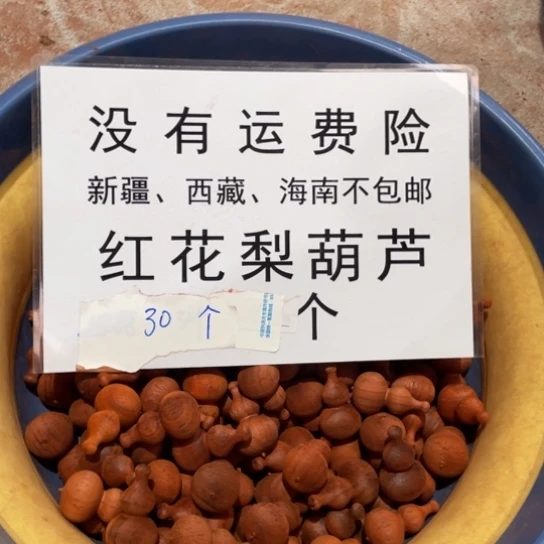 没有运费险
新疆、西藏、海南不包邮
红花梨葫芦
30个 个